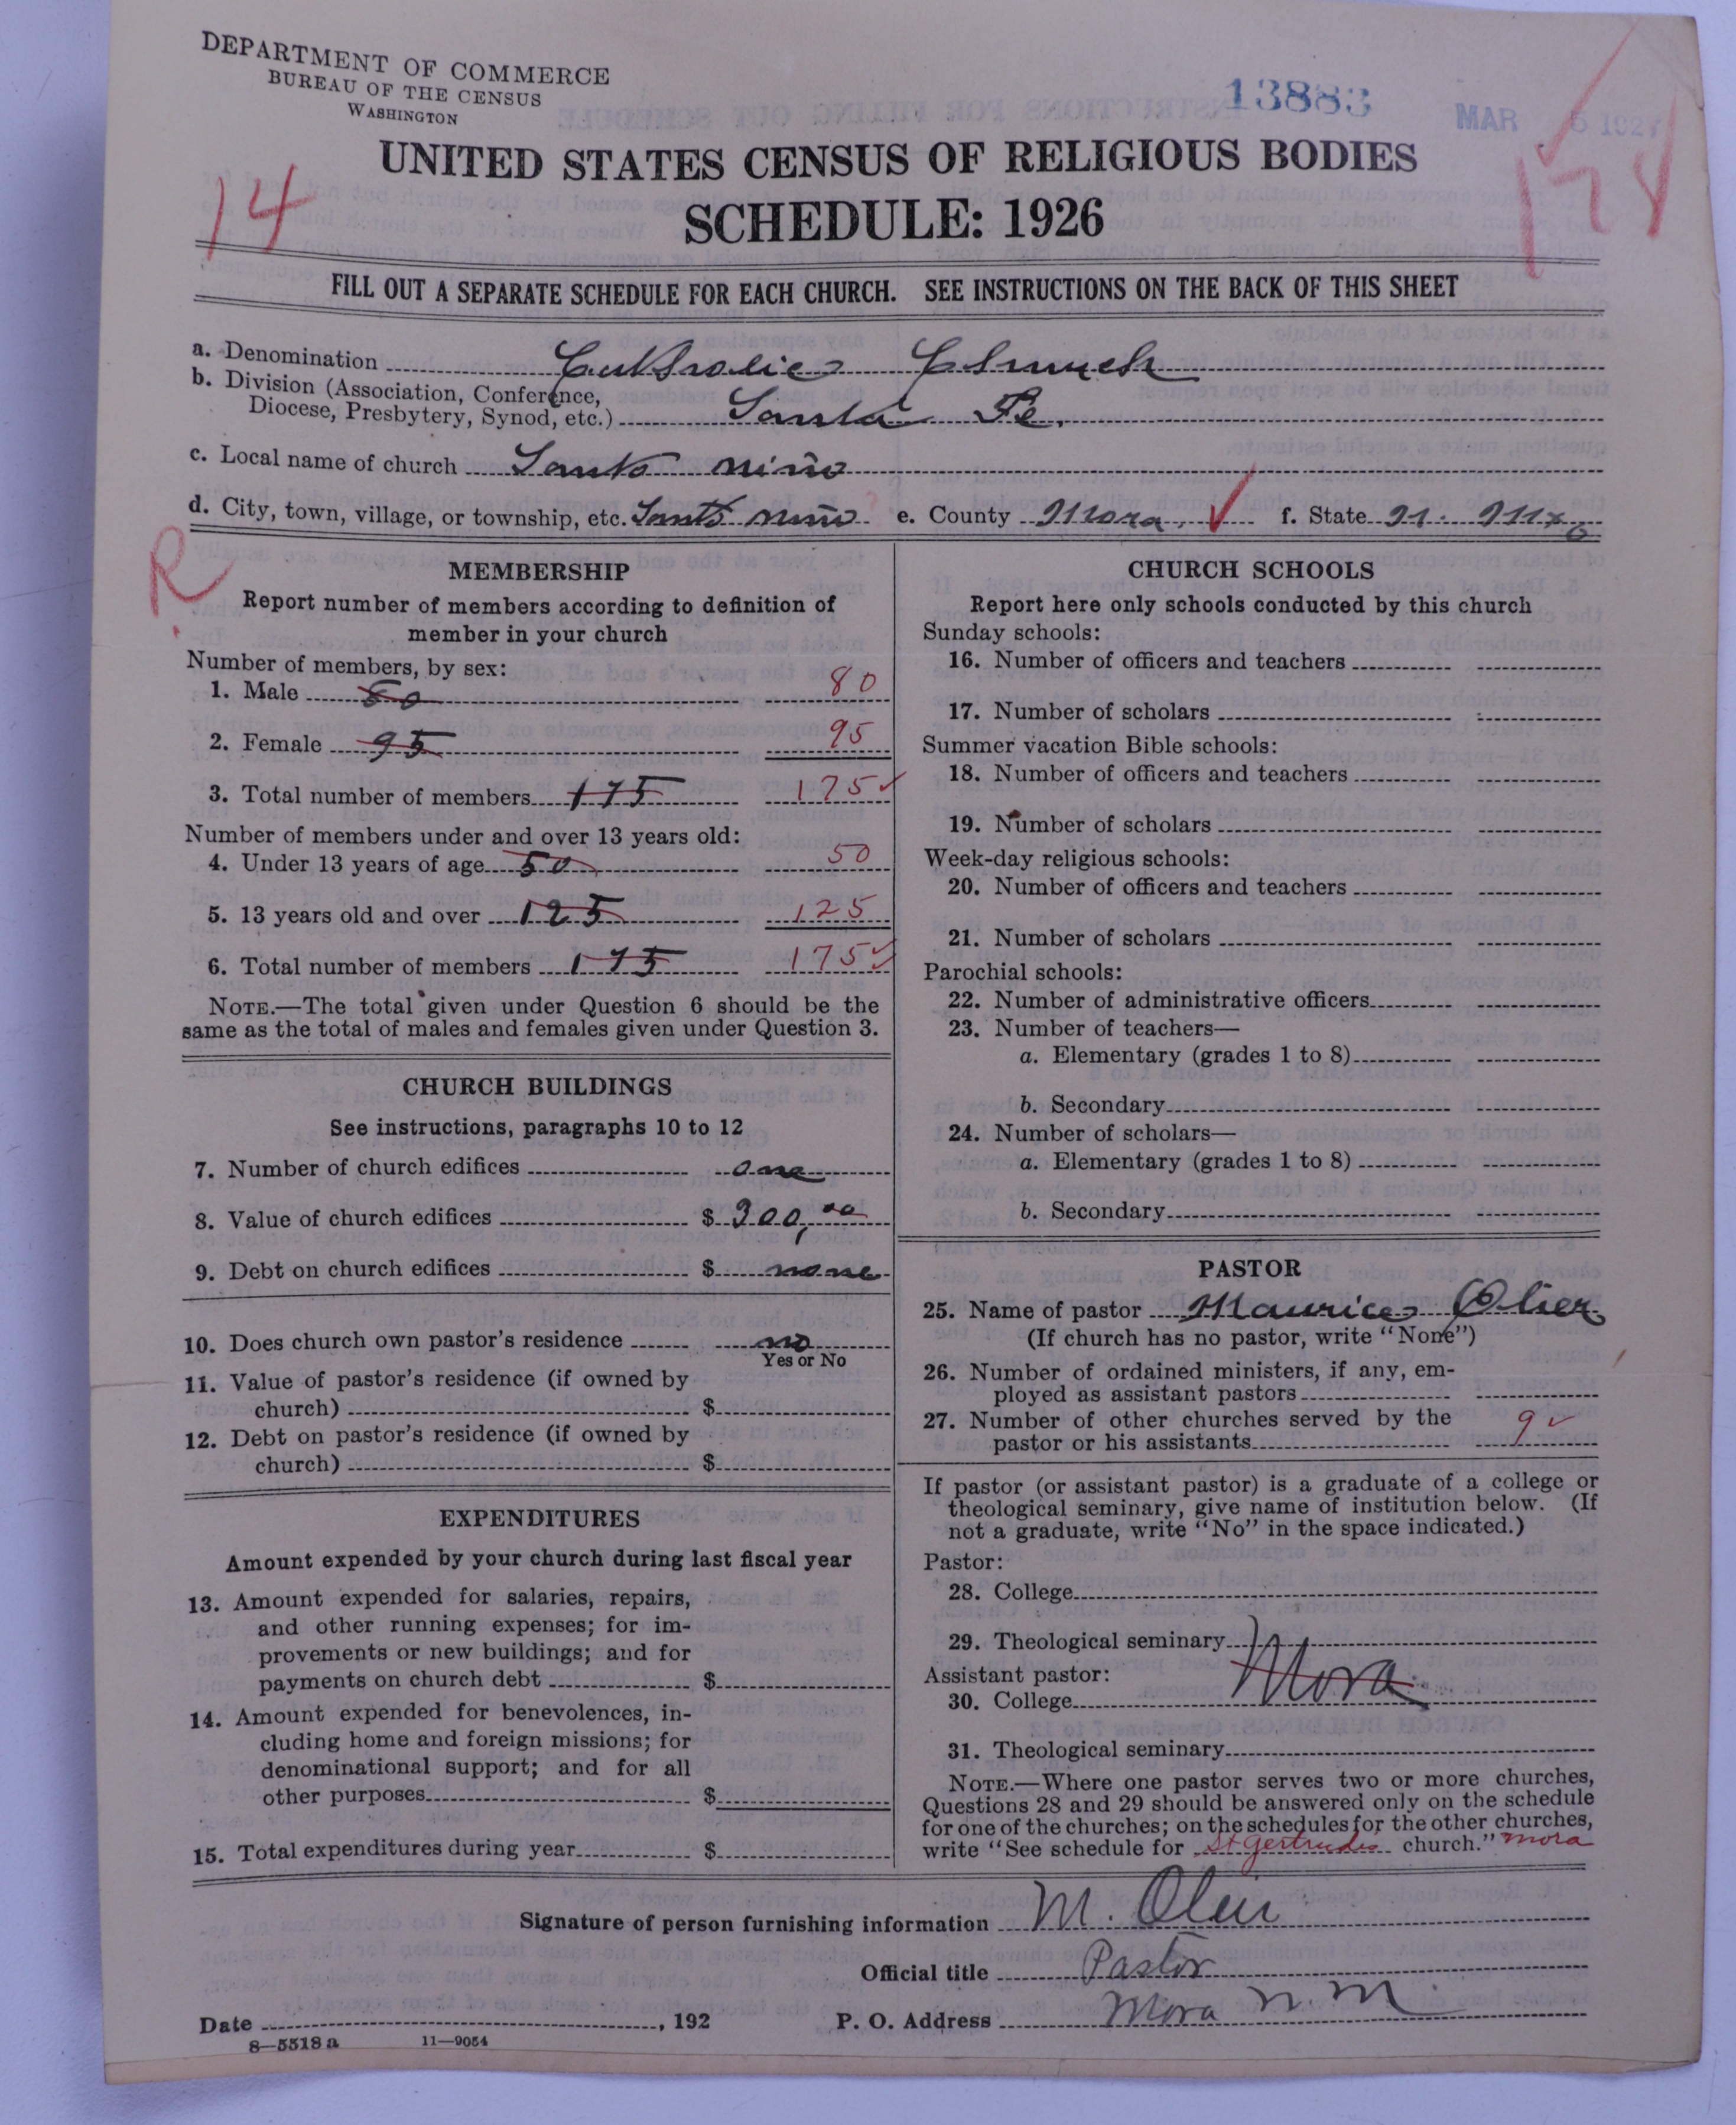 DEPARTMENT OF COMMERCE
BUREAU OF THE CENSUS
WASHINGTON
13883
MAR 5 1927
UNITED STATES CENSUS OF RELIGIOUS BODIES
14
SCHEDULE: 1926
FILL OUT A SEPARATE SCHEDULE FOR EACH CHURCH. SEE INSTRUCTIONS ON THE BACK OF THIS SHEET
a. Denomination Catholic Church
b. Division (Association, Conference,
Diocese, Presbytery, Synod, etc.) Santa Fe.
c. Local name of church Santo niño
d. City, town, village, or township, etc. Santo niño e. County Mora. ✓ f. State N. Mxo
R
MEMBERSHIP
Report number of members according to definition of
member in your church
Number of members, by sex:
1. Male 80 80
2. Female 95 95
3. Total number of members 175 175 ✓
Number of members under and over 13 years old:
4. Under 13 years of age 50 50
5. 13 years old and over 125 125
6. Total number of members 175 175 ✓
NOTE.—The total given under Question 6 should be the
same as the total of males and females given under Question 3.
CHURCH BUILDINGS
See instructions, paragraphs 10 to 12
7. Number of church edifices one
8. Value of church edifices $ 300,00
9. Debt on church edifices $ none
10. Does church own pastor's residence no
Yes or No
11. Value of pastor's residence (if owned by
church) $
12. Debt on pastor's residence (if owned by
church) $
EXPENDITURES
Amount expended by your church during last fiscal year
13. Amount expended for salaries, repairs,
and other running expenses; for im-
provements or new buildings; and for
payments on church debt $
14. Amount expended for benevolences, in-
cluding home and foreign missions; for
denominational support; and for all
other purposes $
15. Total expenditures during year $
CHURCH SCHOOLS
Report here only schools conducted by this church
Sunday schools:
16. Number of officers and teachers
17. Number of scholars
Summer vacation Bible schools:
18. Number of officers and teachers
19. Number of scholars
Week-day religious schools:
20. Number of officers and teachers
21. Number of scholars
Parochial schools:
22. Number of administrative officers
23. Number of teachers—
a. Elementary (grades 1 to 8)
b. Secondary
24. Number of scholars—
a. Elementary (grades 1 to 8)
b. Secondary
PASTOR
25. Name of pastor Maurice Olier
(If church has no pastor, write "None")
26. Number of ordained ministers, if any, em-
ployed as assistant pastors
27. Number of other churches served by the
pastor or his assistants 9 ✓
If pastor (or assistant pastor) is a graduate of a college or
theological seminary, give name of institution below. (If
not a graduate, write "No" in the space indicated.)
Pastor:
28. College
29. Theological seminary
Mora
Assistant pastor:
30. College
31. Theological seminary
NOTE.—Where one pastor serves two or more churches,
Questions 28 and 29 should be answered only on the schedule
for one of the churches; on the schedules for the other churches,
write "See schedule for St Gertrudes church." Mora
Signature of person furnishing information M. Olier
Official title Pastor
Date , 192 P. O. Address Mora N. M.
8—5518 a 11—9054